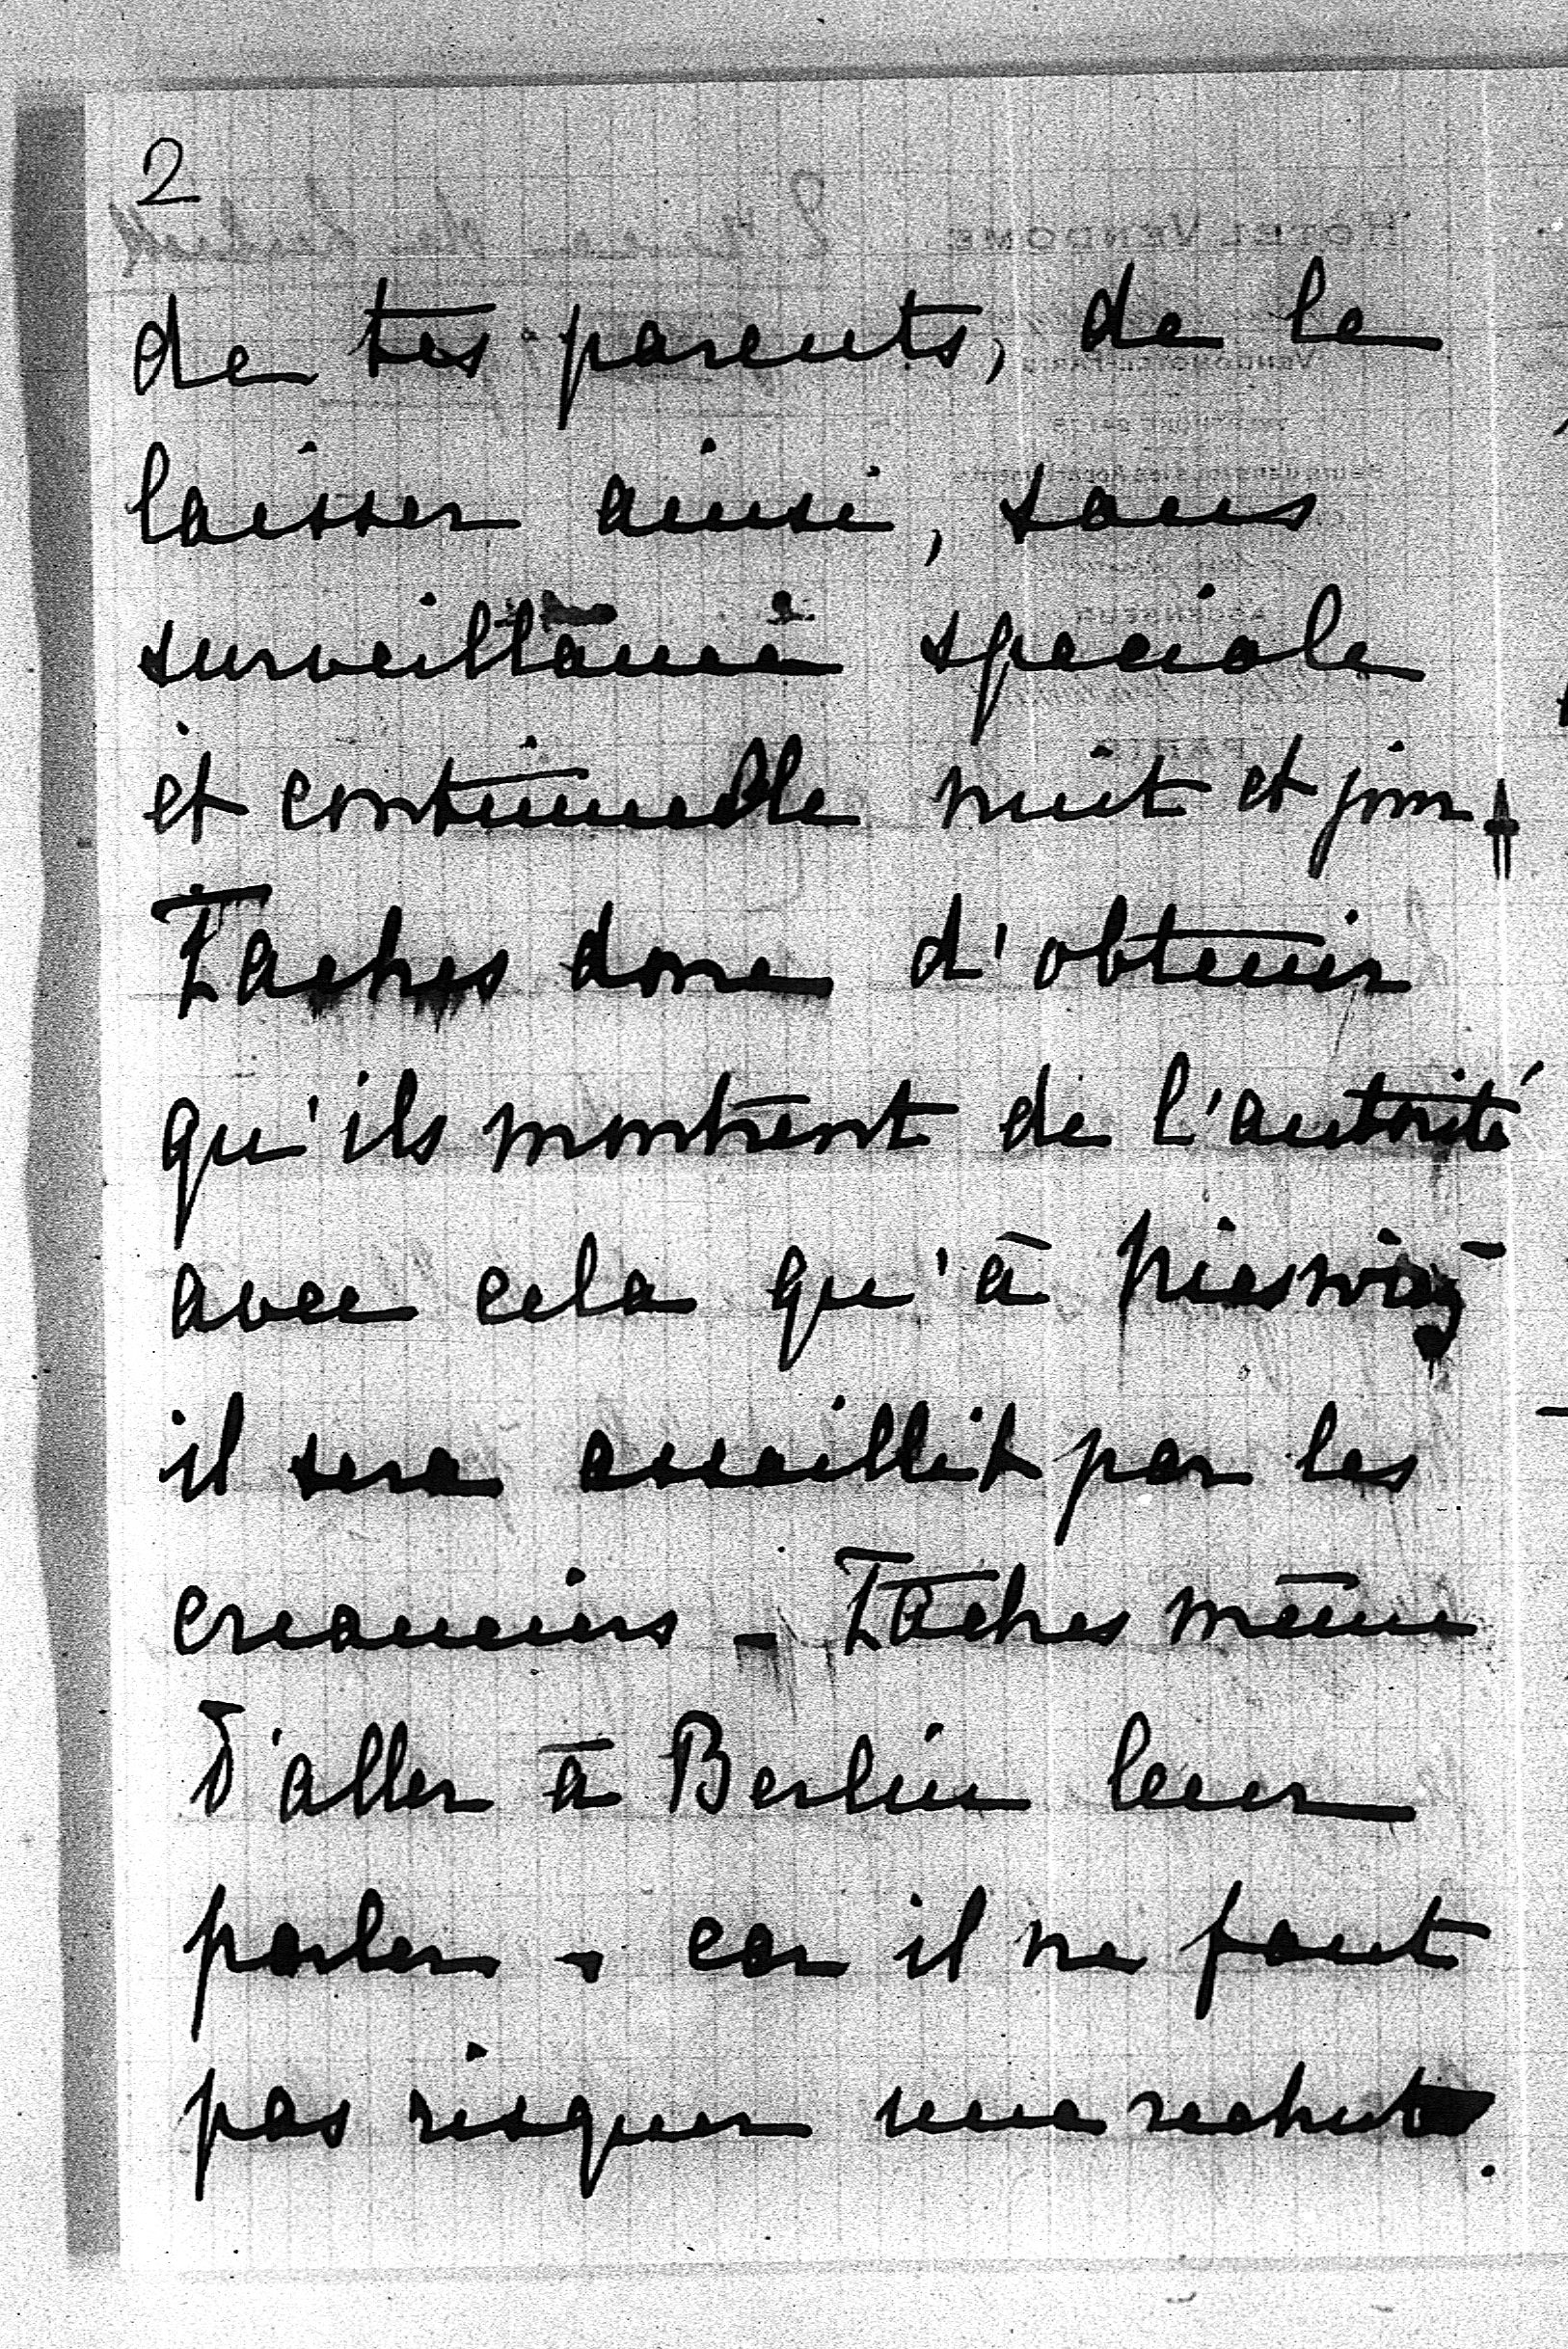 2
de tes parents, de le
laisser ainsi, sans
surveillance speciale
et continuelle nuit et jour
Taches donc d'obtenir
qu'ils montrent de l'autorité
avec cela qu'à Nieswiez
il sera assaillit par les
creanciers - Taches même
d'aller à Berlin leur
parler - car il ne faut
pas risquer une rechute.
HOTEL VENDOME